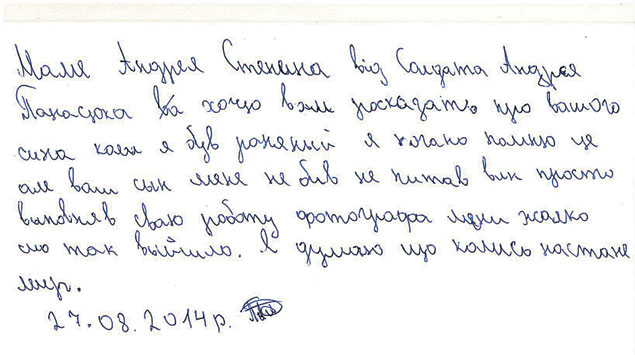 Маме Андрея Стенина від Солдата Андрея
Панасюка я хочю вам росказать про вашого
сина коли я був раняний я погано помню це
але ваш сын мене не бив не питав він просто
выповняв сваю работу фотографа мени жалко
шо так выйшло. Я думаю що колись настане
мир.
27.08.2014р.